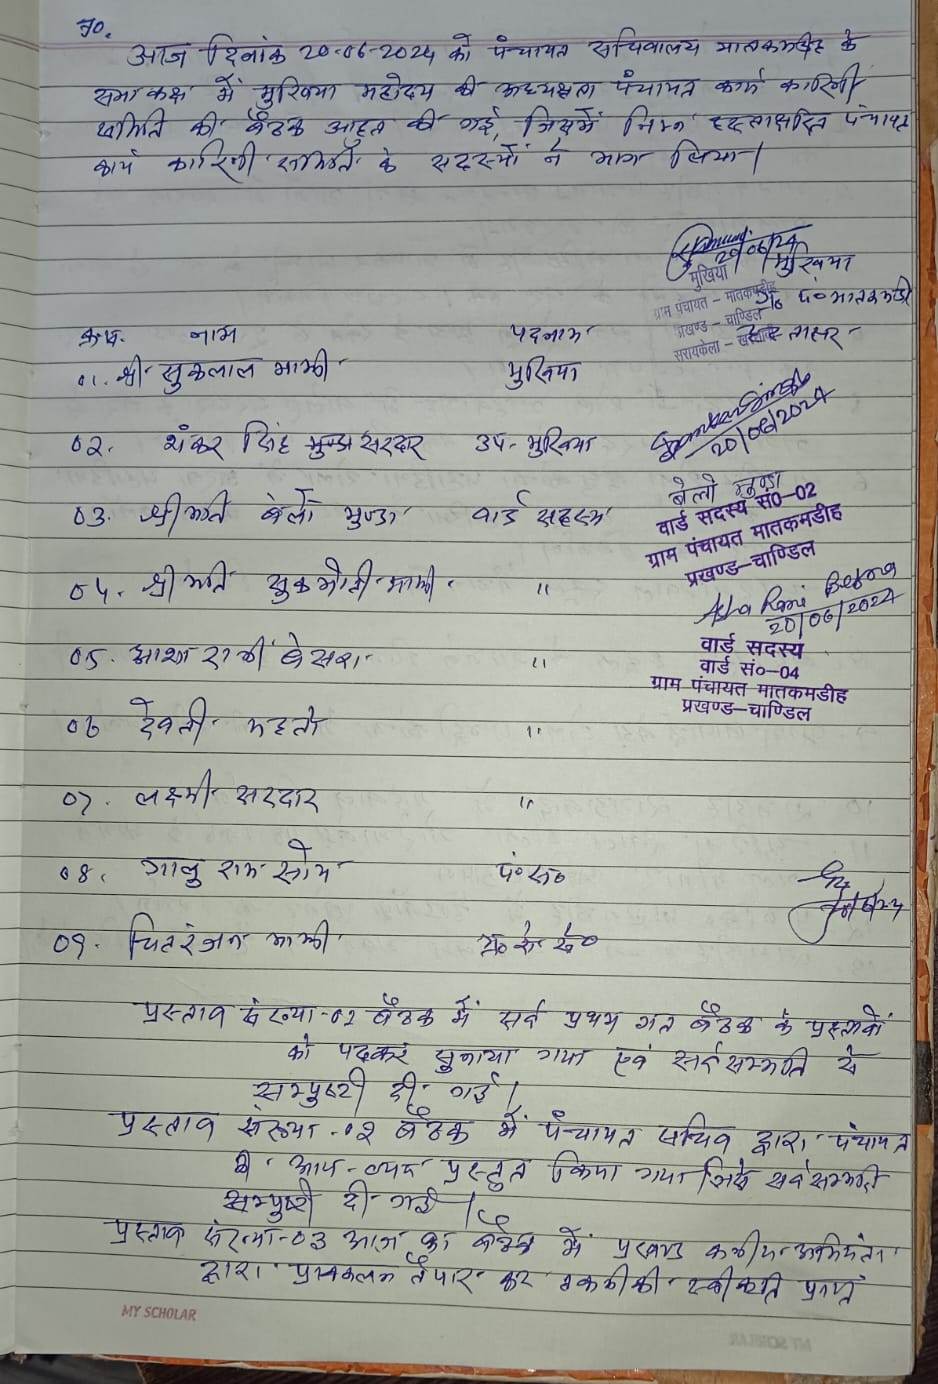 आज दिनांक 20-06-2024 को पंचायत सचिवालय मातकमडीह के
सभा कक्ष में मुखिया महोदय की अध्यक्षता पंचायत कार्य कारिणी
समिति की बैठक आहुत की गई, जिसमें निम्न हस्ताक्षरित पंचायत
कार्य कारिणी समिति के सदस्यों ने भाग लिया।
20/06/24
मुखिया
मुखिया
ग्रा० पं० मातकमडीह
ग्राम पंचायत - मातकमडीह
प्रखण्ड - चाण्डिल
सरायकेला -
क्र०सं. नाम पदनाम हस्ताक्षर
01. श्री सुकलाल माझी मुखिया
02. शंकर सिंह मुण्डा सरदार उप-मुखिया
Shankar Singh
20/06/2024
03. श्रीमति बेलो मुण्डा वार्ड सदस्य
बेलो मुण्डा
वार्ड सदस्य सं0-02
ग्राम पंचायत मातकमडीह
प्रखण्ड-चाण्डिल
04. श्रीमति सुकमोती माझी "
Asha Rani Besra
20/06/2024
05. आशा रानी बेसरा "
वार्ड सदस्य
वार्ड सं०-04
ग्राम पंचायत मातकमडीह
प्रखण्ड-चाण्डिल
06 देवली महतो "
07. लक्ष्मी सरदार "
08. गालु राम सोय पं० स०
09. चितरंजन माझी ग्रा० रो० से०
प्रस्ताव संख्या-01 बैठक में सर्व प्रथम गत बैठक के प्रस्तावों
को पढ़कर सुनाया गया एवं सर्वसम्मति से
सम्पुष्टी दी गई।
प्रस्ताव संख्या-02 बैठक में पंचायत सचिव द्वारा पंचायत
के आय-व्यय प्रस्तुत किया गया जिसे सर्वसम्मती
सम्पुष्टी दी गई।
प्रस्ताव संख्या-03 आज का बैठक में प्रखण्ड कनीय अभियंता
द्वारा प्राक्कलन तैयार कर तकनीकी स्वीकृति प्राप्त
MY SCHOLAR